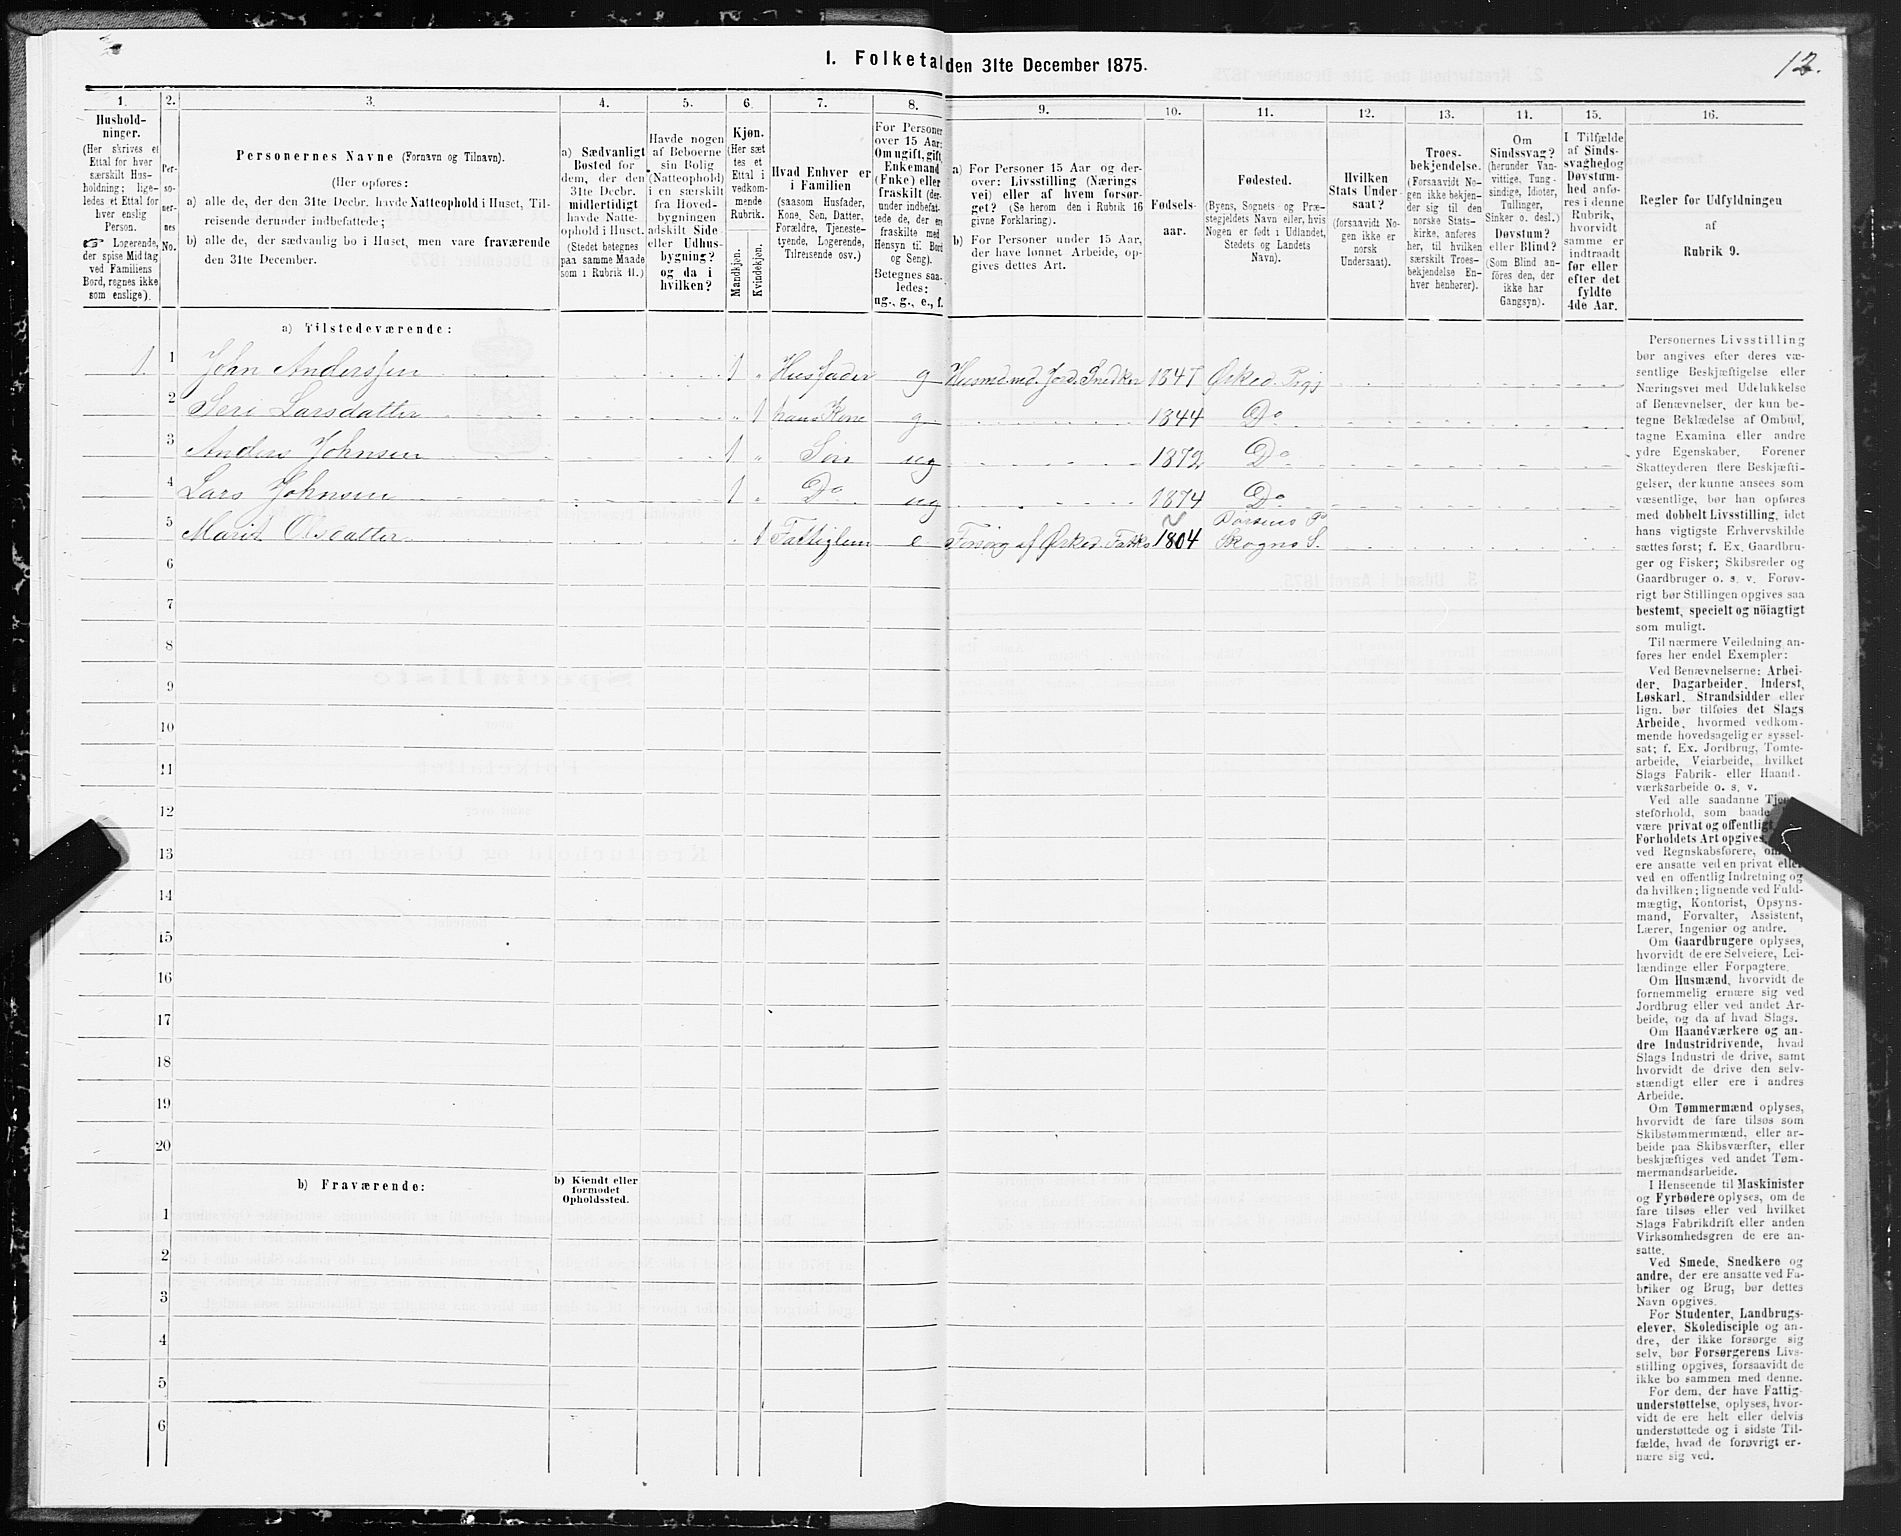 I. Folketal den 31te December 1875.
12.
1.
Hushold-
ninger.
(Her skrives et
Ettal for hver
særskilt Hus-
holdning; lige-
ledes et Ettal for
hver enslig
Person.
☞ Logerende,
der spise Middag
ved Familiens
Bord, regnes ikke
som enslige).
2.
Per-
so-
ner-
nes
No.
3.
Personernes Navne (Fornavn og Tilnavn).
(Her opføres:
a) alle de, der den 31te Decbr. havde Natteophold i Huset, Til-
reisende derunder indbefattede;
b) alle de, der sædvanlig bo i Huset, men vare fraværende
den 31te December.
4.
a) Sædvanligt
Bosted for
dem, der den
31te Decbr.
midlertidigt
havde Natte-
ophold i Huset.
(Stedet betegnes
paa samme Maade
som i Rubrik 11.)
5.
Havde nogen
af Beboerne
sin Bolig
(Natteophold)
i en særskilt
fra Hoved-
bygningen
adskilt Side-
eller Udhus-
bygning?
og da i
hvilken?
6.
Kjøn.
(Her sæt
tes et
Ettal i
vedkom-
mende
Rubrik.
Mandkjøn.
Kvindekjøn.
7.
Hvad Enhver er
i Familien
(saasom Husfader,
Kone, Søn, Datter,
Forældre, Tjeneste-
tyende, Logerende,
Tilreisende osv.)
8.
For Personer
over 15 Aar:
Om ugift, gift,
Enkemand
(Enke) eller
fraskilt (der-
under indbefat-
tede de, der ere
fraskilte med
Hensyn til Bord
og Seng).
Betegnes saa-
ledes:
ug., g., e., f.
9.
a) For Personer 15 Aar og der-
over: Livsstilling (Nærings
vei) eller af hvem forsør-
get? (Se herom den i Rubrik 16
givne Forklaring).
b) For Personer under 15 Aar,
der have lønnet Arbeide, op-
gives dettes Art.
10.
Fødsels-
aar.
11.
Fødested.
(Byens, Sognets og Præ-
stegjeldets Navn eller, hvis
Nogen er født i Udlandet,
Stedets og Landets
Navn).
12.
Hvilken
Stats Under-
saat?
(forsaavidt No-
gen ikke er
norsk
Undersaat).
13.
Troes-
bekjendelse.
(Forsaavidt No-
gen ikke bekjen-
der sig til den
norske Stats-
kirke, anføres
her, til hvilken
særskilt Troes-
bekjendelse En-
hver henhører).
14.
Om
Sindssvag?
(herunder Van-
vittige, Tung-
sindige, Idioter,
Tullinger,
Sinker o. desl.)
Døvstum?
eller Blind?
(Som Blind an-
føres den, der
ikke har
Gangsyn).
15.
I Tilfælde
af Sinds-
svaghed og
Døvstum-
hed anfø-
res i denne
Rubrik,
hvorvidt
samme er
indtraadt
før eller
efter det
fyldte
4de Aar.
16.
Regler for Udfyldningen
af
Rubrik 9.
a) Tilstedeværende:
1 1 John Anderssen 1 „ Husfader g Husmd. md. Jord. Snedker 1847 Ørked. Prgj
2 Seri Larsdatter „ 1 hans Kone g 1844 Do
3 Anders Johnsen 1 „ Søn ug 1872 Do
4 Lars Johnsen 1 „ Do ug 1874 Do
5 Marit Olsdatter 1 Fattiglem e Forsørg af Ørked. Fattks 1804 P. Skogns S.
6
7
8
9
10
11
12
13
14
15
16
17
18
19
20
b) Fraværende:
b) Kjendt eller
formodet
Opholdssted.
1
2
3
4
5
6
Personernes Livsstilling
bør angives efter deres væ-
sentlige Beskjæftigelse eller
Næringsvei med Udelukkelse
af Benævnelser, der kun be-
tegne Beklædelse af Ombud,
tagne Examina eller andre
ydre Egenskaber. Forener
Skatteyderen flere Beskjæfti-
gelser, der kunne ansees som
væsentlige, bør han opføres
med dobbelt Livsstilling, idet
hans vigtigste Erhvervskilde
sættes først; f. Ex. Gaardbru-
ger og Fisker; Skibsreder og
Gaardbruger o. s. v. Forøv-
rigt bør Stillingen opgives saa
bestemt, specielt og nöiagtigt
som muligt.
Til nærmere Veiledning an-
føres her endel Exempler:
Ved Benævnelserne: Arbei-
der, Dagarbeider, Inderst,
Løskarl, Strandsidder eller
lign. bør tilføies det Slags
Arbeide, hvormed vedkom-
mende hovedsagelig er syssel-
sat; f. Ex. Jordbrug, Tomte-
arbeide, Veiarbeide, hvilket
Slags Fabrik- eller Haand-
værksarbeide o. s. v.
Ved alle saadanne
steforhold, som baade
være privat og offentligt,
Forholdets Art opgives,
ved Regnskabsførere, om
ere ansatte ved en privat eller
ved en offentlig Indretning og
da hvilken; lignende ved Fuld-
mægtig, Kontorist, Opsyns-
mand, Forvalter, Assistent,
Lærer, Ingeniør og andre.
Om Gaardbrugere oplyses,
hvorvidt de ere Selveiere, Lei-
lændinge eller Forpagtere.
Om Husmænd, hvorvidt de
fornemmelig ernære sig ved
Jordbrug eller ved andet Ar-
beide, og da af hvad Slags.
Om Haandværkere og an-
dre Industridrivende, hvad
Slags Industri de drive, samt
hvorvidt de drive den selv-
stændigt eller ere i andres
Arbeide.
Om Tømmermænd oplyses,
hvorvidt de fare tilsøs som
Skibstømmermænd, eller ar-
beide paa Skibsværfter, eller
beskjæftiges ved andet Tøm-
mermandsarbeide.
I Henseende til Maskinister
og Fyrbødere oplyses, om de
fare tilsøs eller ved hvilket
Slags Fabrikdrift eller anden
Virksomhedsgren de ere an-
satte.
Ved Smede, Snedkere og
andre, der ere ansatte ved Fa-
briker og Brug, bør dettes
Navn opgives.
For Studenter, Landbrugs-
elever, Skoledisciple og an-
dre, der ikke forsørge sig
selv, bør Forsørgerens Livs-
stilling opgives, forsaavidt de
ikke bo sammen med denne.
For dem, der have Fattig-
understøttelse, oplyses, hvor-
vidt de ere helt eller delvis
understøttede og i sidste Til-
fælde, hvad de forøvrigt er-
nære sig ved.